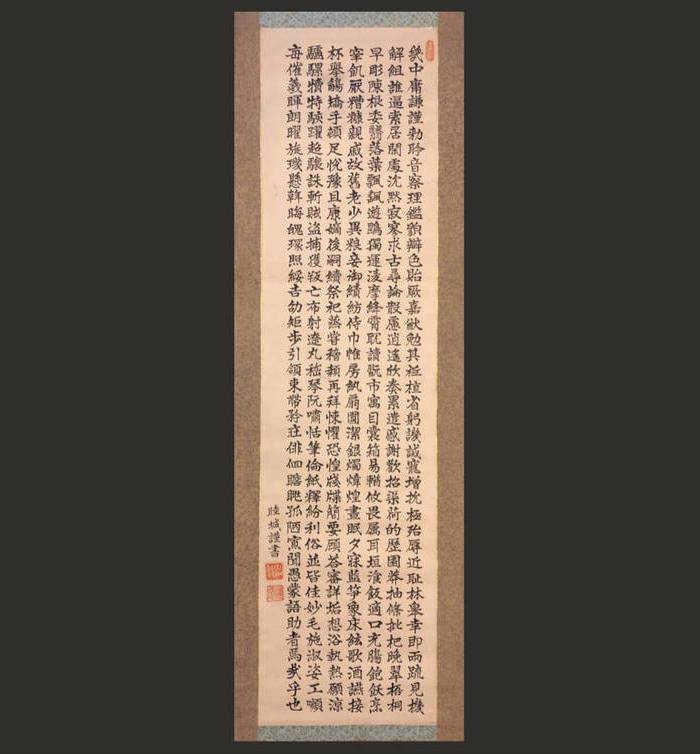 幾中庸謙謹勑聆音察理鑑貌辨色貽厥嘉猷勉其祗植省躬譏誡寵增抗極殆辱近耻林皋幸即兩疏見機
解組誰逼索居閒處沈默寂寥求古尋論散慮逍遙欣奏累遣慼謝歡招渠荷的歷園莽抽條枇杷晚翠梧桐
早彫陳根委翳落葉飄颻遊鵾獨運淩摩絳霄耽讀翫市寓目囊箱易輶攸畏屬耳垣飡飯適口充腸飽飫烹
宰飢厭糟糠親戚故舊老少異粮妾御績紡侍巾帷房紈扇圓潔銀燭煒煌晝眠夕寐藍笋象床絃歌酒讌接
杯舉觴矯手頓足悅豫且康嫡後嗣續祭祀蒸嘗稽顙再拜悚懼恐惶牋牒簡要顧答審詳垢想浴執熱願涼
驢騾犢特駭躍超驤誅斬賊盜捕獲叛亡布射遼丸嵇琴阮嘯恬筆倫紙釋紛利俗並皆佳妙毛施淑姿工嚬
每催羲暉朗曜旋璣懸斡晦魄環照綏吉劭矩步引領束帶矜莊俳佪瞻眺孤陋寡聞愚蒙語助者焉哉乎也
睦城謹書